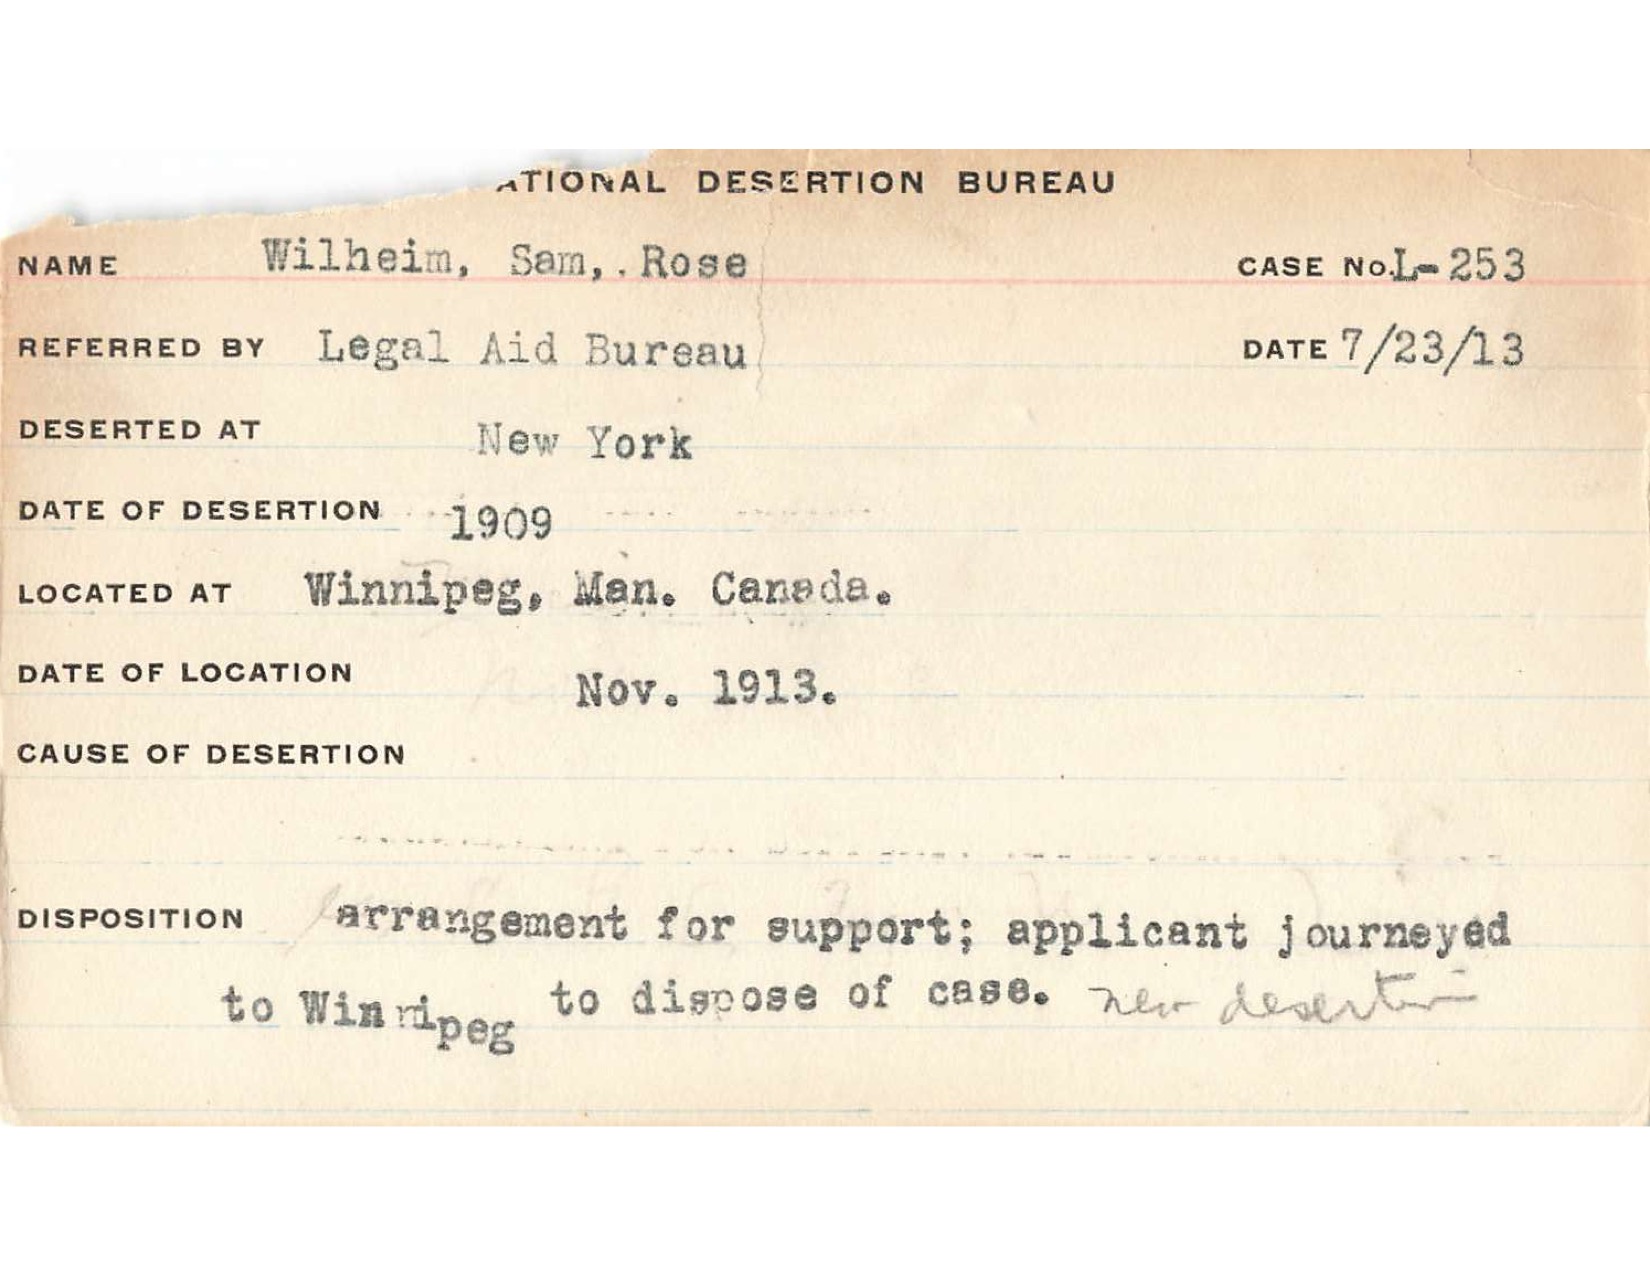 ATIONAL DESERTION BUREAU
NAME Wilheim, Sam,. Rose CASE No. L-253
REFERRED BY Legal Aid Bureau DATE 7/23/13
DESERTED AT New York
DATE OF DESERTION 1909
LOCATED AT Winnipeg, Man. Canada.
DATE OF LOCATION Nov. 1913.
CAUSE OF DESERTION
DISPOSITION arrangement for support; applicant journeyed
to Winnipeg to dispose of case. new desertion